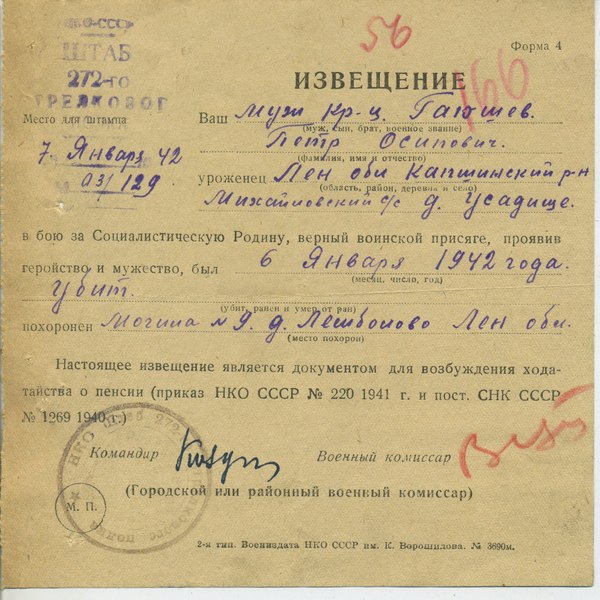 НКО-СССР
ШТАБ
272-го
СТРЕЛКОВОГ
56
166
Форма 4
ИЗВЕЩЕНИЕ
Место для штампа
7 Января 42
№ 03/129
Ваш Муж Кр-ц. Гаюшев.
(муж, сын, брат, военное звание)
Петр Осипович.
(фамилия, имя и отчество)
уроженец Лен обл Капшинский р-н
(область, район, деревня и село)
Михайловский с/с д. Усадище.
в бою за Социалистическую Родину, верный воинской присяге, проявив
геройство и мужество, был 6 Января 1942 года.
(месяц, число, год)
Убит.
(убит, ранен и умер от ран)
похоронен Могила №9. д. Лемболово Лен обл.
(место похорон)
Настоящее извещение является документом для возбуждения хода-
тайства о пенсии (приказ НКО СССР № 220 1941 г. и пост. СНК СССР
№ 1269 1940 г.)
Командир Военный комиссар
(Городской или районный военный комиссар)
М. П.
НКО Штаб 272 полка
2-я тип. Воениздата НКО СССР им. К. Ворошилова. № 3690м.